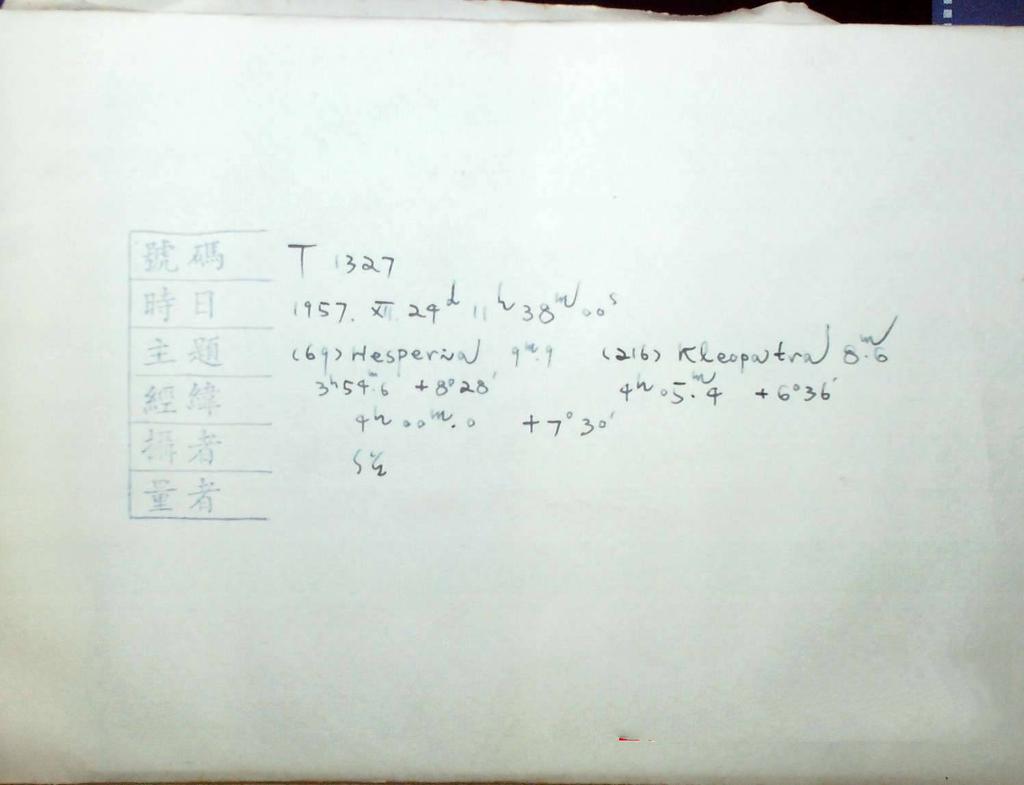 號碼 T 1327
時日 1957. XII. 24ᵈ 11ʰ 38ᵐ 00ˢ
主題 (69) Hesperia 9ᵐ.9 (216) Kleopatra 8ᵐ.6
經緯 3ʰ54ᵐ.6 +8°28′ 4ʰ05ᵐ.4 +6°36′
4ʰ00ᵐ.0 +7°30′
攝者
量者